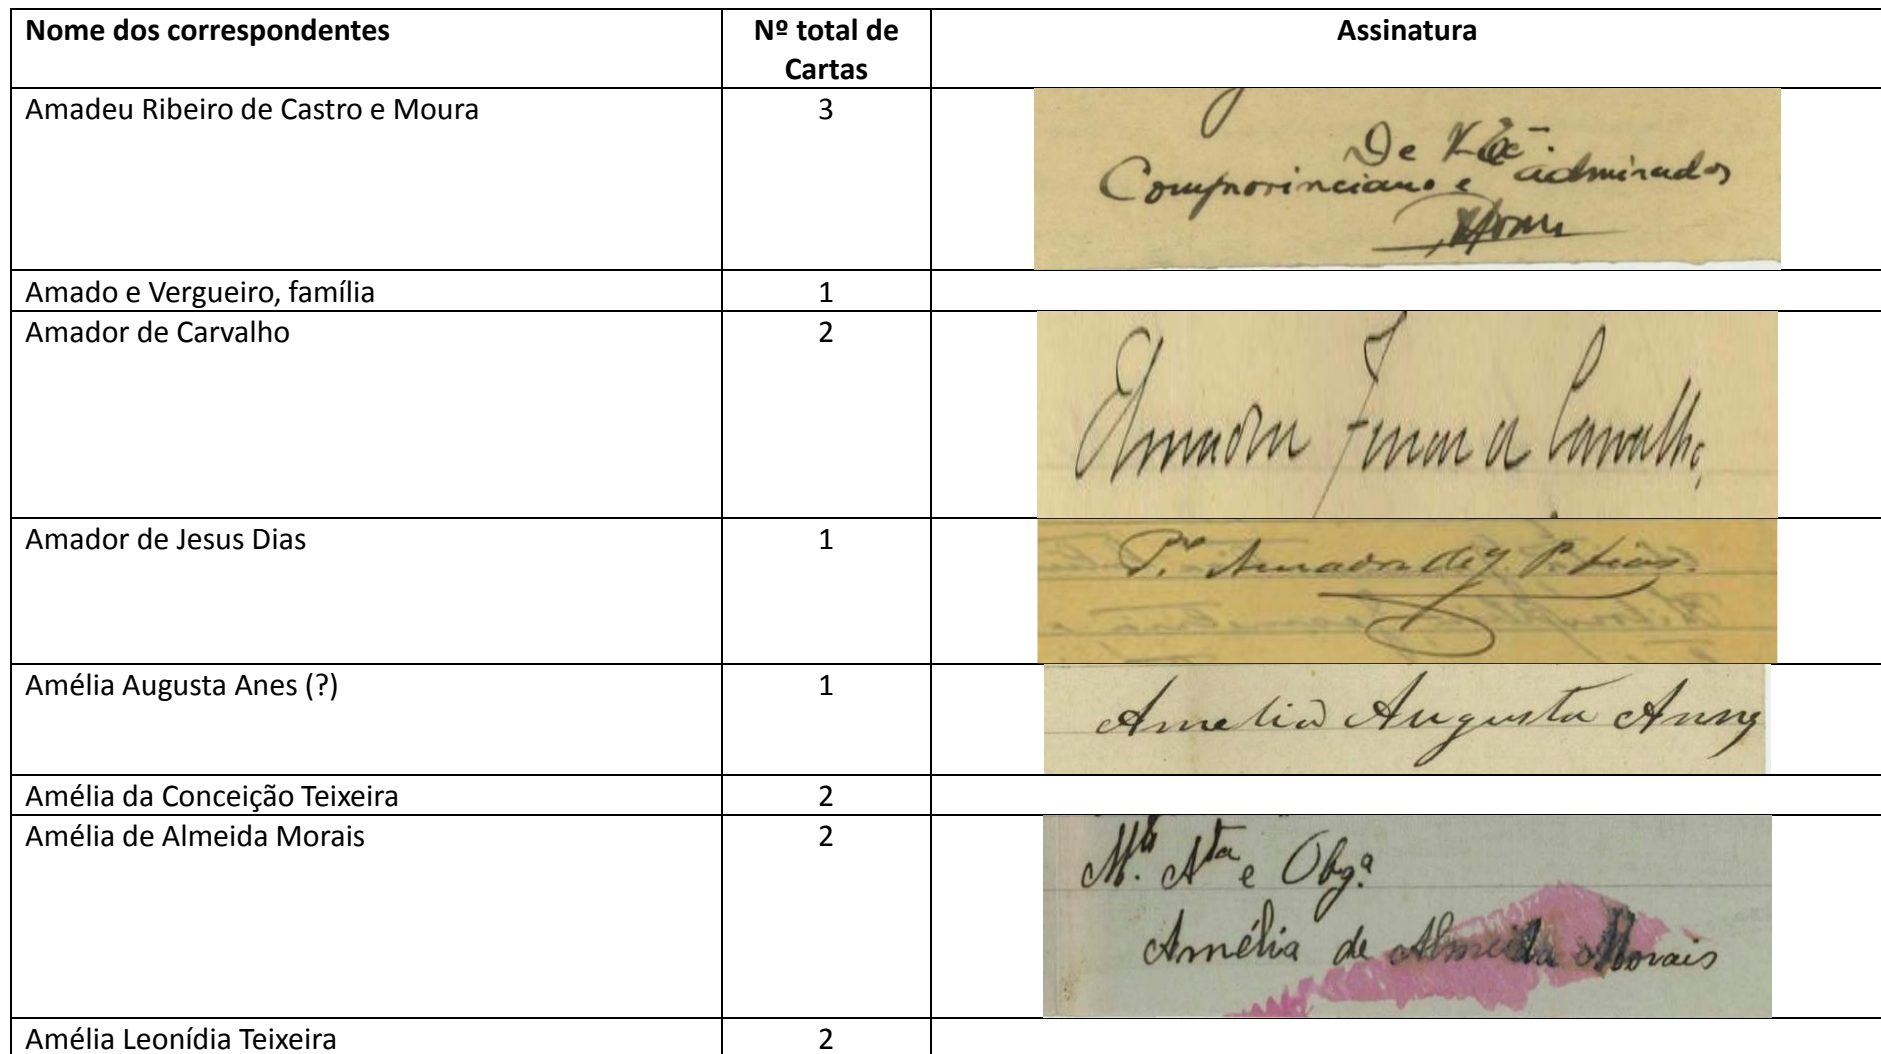 Nome dos correspondentes
Nº total de
Cartas
Assinatura
Amadeu Ribeiro de Castro e Moura
3
De
Comprovinciano e admirador
Amado e Vergueiro, família
1
Amador de Carvalho
2
Amador de Carvalho
Amador de Jesus Dias
1
P.e Amador de J. P. Dias.
Amélia Augusta Anes (?)
1
Amelia Augusta
Amélia da Conceição Teixeira
2
Amélia de Almeida Morais
2
M.to A.ta e Obg.ª
Amélia de Almeida Morais
Amélia Leonídia Teixeira
2